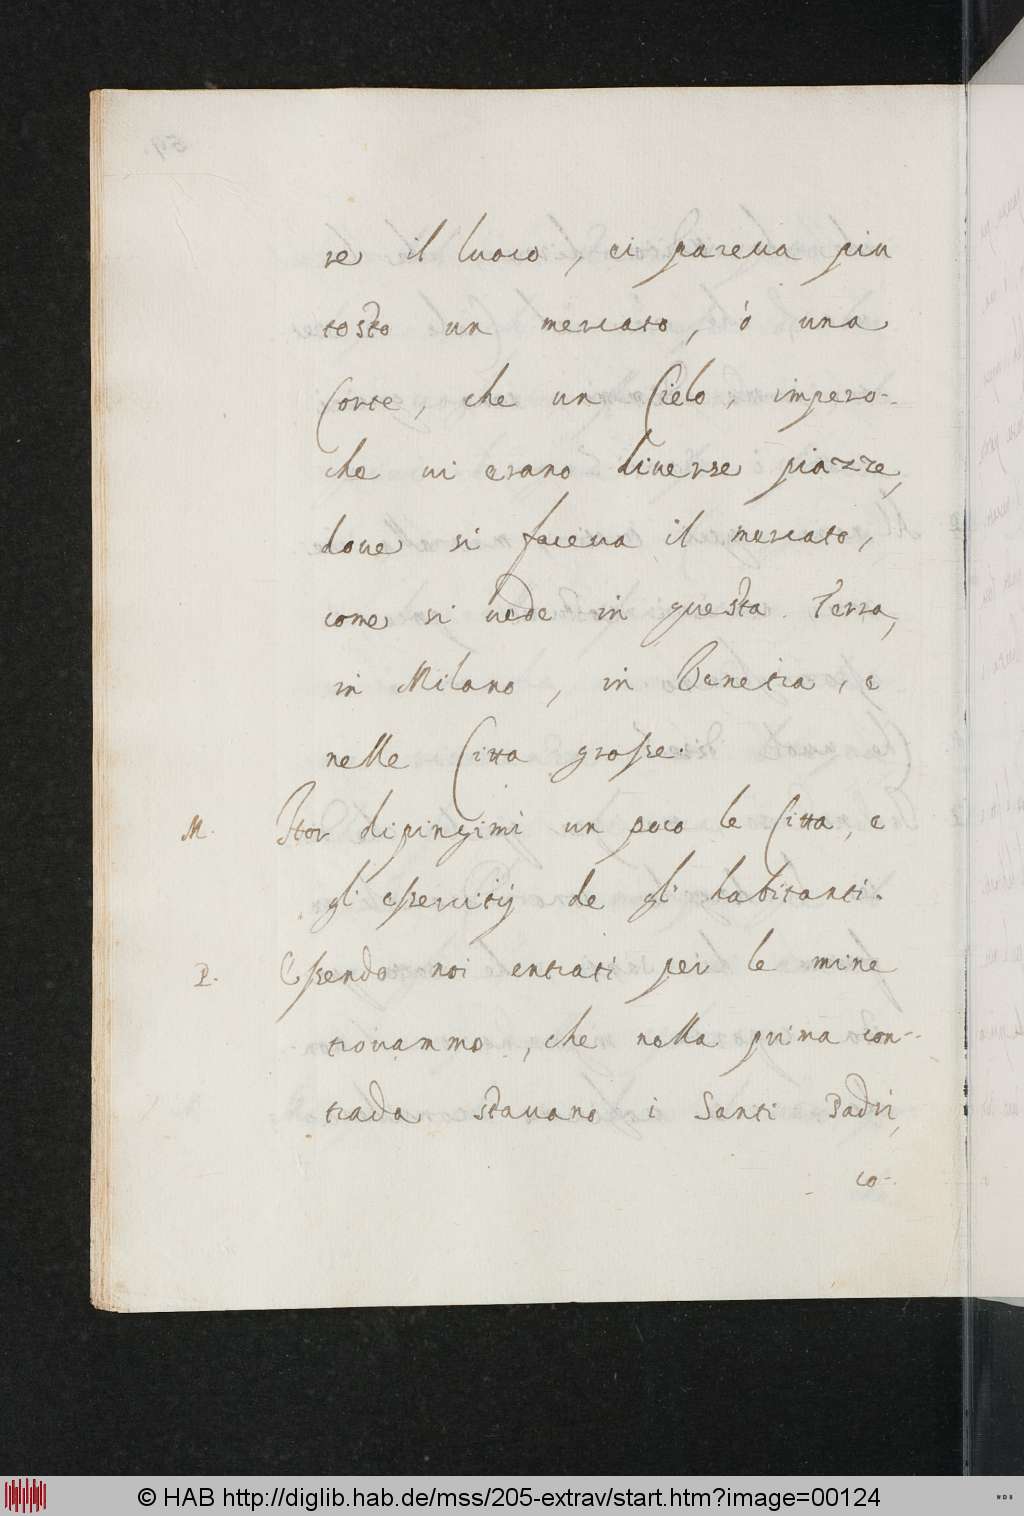 re il luoco, ci pareua piu
tosto un mercato, ò una
Corte, che un Cielo, impero-
che ui erano diuerse piazze,
doue si faceua il mercato,
come si uede in questa Terra,
in Milano, in Venetia, e
nelle Citta grosse.
M. Hor dipingimi un poco le Citta, e
gli essercitij de gli habitanti.
P. Essendo noi entrati per le mine
trouammo, che nella prima con-
trada stauano i Santi Padri,
co-
© HAB http://diglib.hab.de/mss/205-extrav/start.htm?image=00124